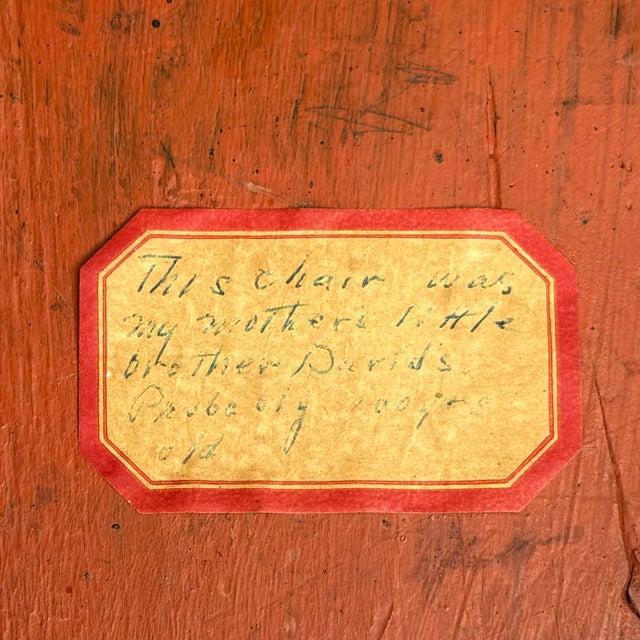 This chair was
my mother's little
brother David's.
Probably 100 yrs
old